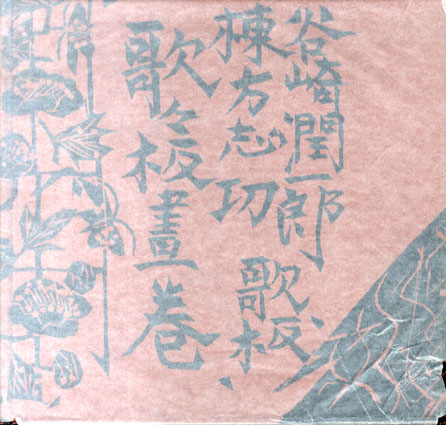 谷崎潤一郎 歌
棟方志功 板
歌々板畫巻